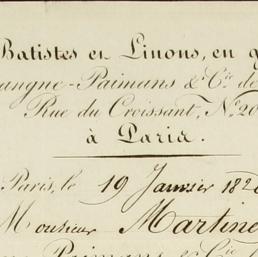 Batistes et Linons, en g
angne-Paimans & Cie. de
Rue du Croissant, No. 20
à Paris.
Paris, le 19 Janvier 182
Monsieur Martine
Paimans & Cie